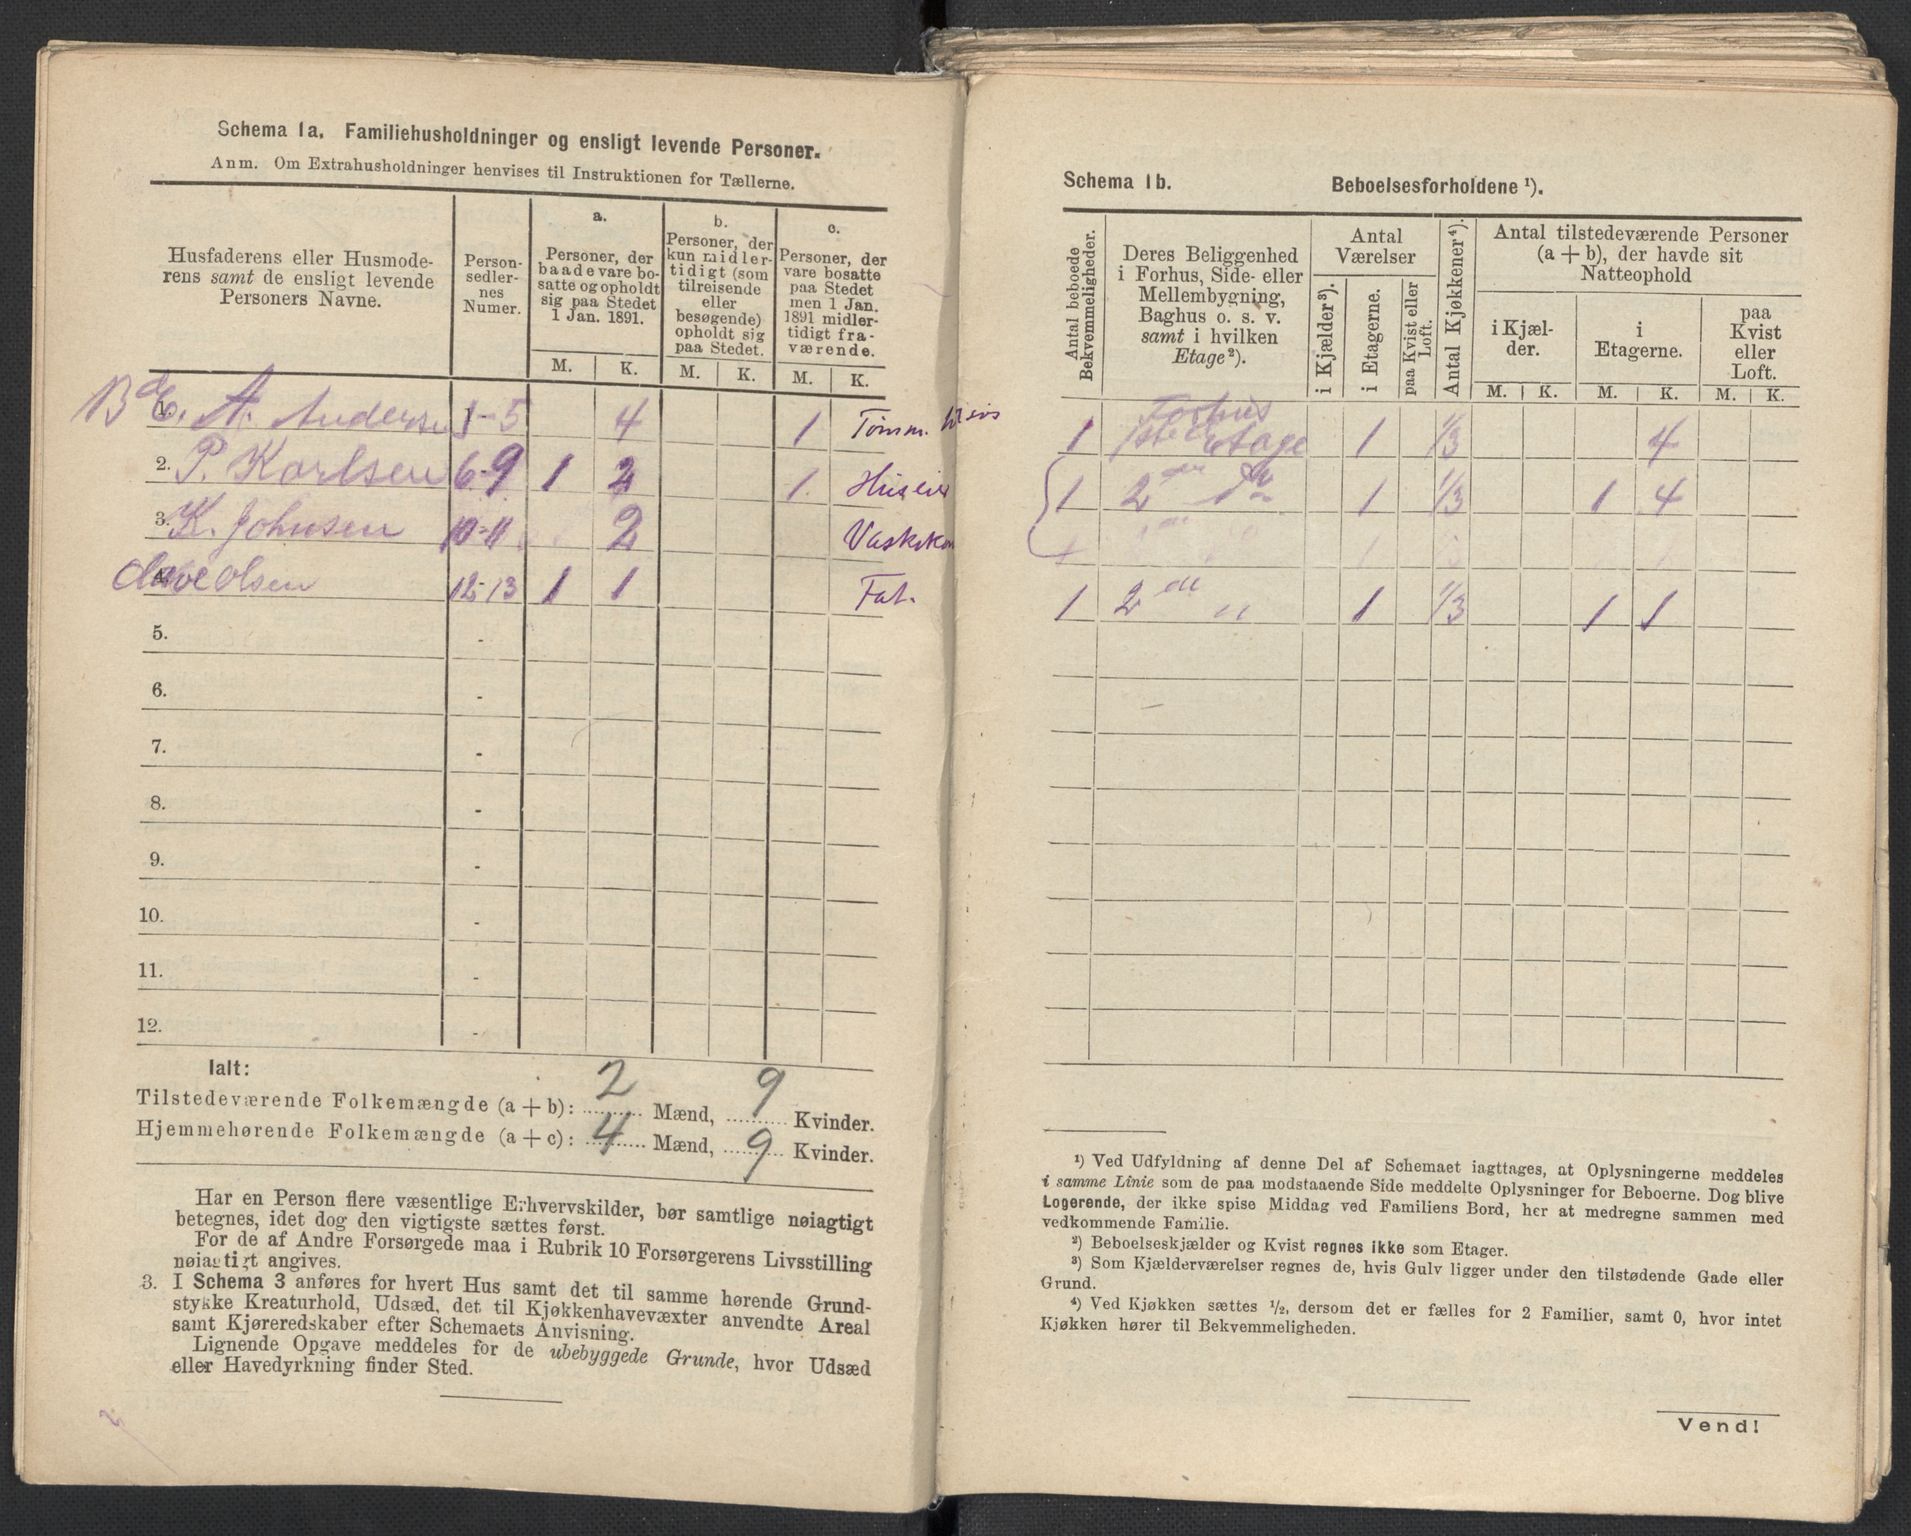 Schema 1a. Familiehusholdninger og ensligt levende Personer.
Anm. Om Extrahusholdninger henvises til Instruktionen for Tællerne.
Husfaderens eller Husmoderens samt de ensligt levende Personers Navne.
Personsedlernes Numer.
a. Personer, der baade vare bosatte og opholdt sig paa Stedet 1 Jan. 1891.
b. Personer, der kun midlertidigt (som tilreisende eller besøgende) opholdt sig paa Stedet.
c. Personer, der vare bosatte paa Stedet men 1 Jan. 1891 midlertidigt fraværende.
M. K. M. K. M. K.
1. E. A. Anders 1-5 4 1 Tømm.
2. P. Karlsen 6-9 1 2 1. Huseier
3. K. Johnsen 10-11 2 Vaskekon
4. Olsen 12-13 1 1 Fat.
5. -
6. -
7. -
8. -
9. -
10. -
11. -
12. -
Ialt:
Tilstedeværende Folkemængde (a + b): 2 Mænd, 9 Kvinder.
Hjemmehørende Folkemængde (a + c): 4 Mænd, 9 Kvinder.
Har en Person flere væsentlige Erhvervskilder, bør samtlige nøiagtigt
betegnes, idet dog den vigtigste sættes først.
For de af Andre Forsørgede maa i Rubrik 10 Forsørgerens Livsstilling
nøiagtigt angives.
3. I Schema 3 anføres for hvert Hus samt det til samme hørende Grund-
stykke Kreaturhold, Udsæd, det til Kjøkkenhavevæxter anvendte Areal
samt Kjøreredskaber efter Schemaets Anvisning.
Lignende Opgave meddeles for de ubebyggede Grunde, hvor Udsæd
eller Havedyrkning finder Sted.
Schema 1b. Beboelsesforholdene ¹).
Antal beboede Bekvemmeligheder.
Deres Beliggenhed i Forhus, Side- eller Mellembygning, Baghus o. s. v. samt i hvilken Etage ²).
Antal Værelser
i Kjælder ³).
i Etagerne.
paa Kvist eller Loft.
Antal Kjøkkener ⁴).
Antal tilstedeværende Personer (a + b), der havde sit Natteophold
i Kjælder.
i Etagerne.
paa Kvist eller Loft.
M. K. M. K. M. K.
1 Forhus 1ste Etage 1 1/3 4
1 2den do 1 1/3 1 4
1 2de " 1 1/3 1 1
¹) Ved Udfyldning af denne Del af Schemaet iagttages, at Oplysningerne meddeles
i samme Linie som de paa modstaaende Side meddelte Oplysninger for Beboerne. Dog blive
Logerende, der ikke spise Middag ved Familiens Bord, her at medregne sammen med
vedkommende Familie.
²) Beboelseskjælder og Kvist regnes ikke som Etager.
³) Som Kjælderværelser regnes de, hvis Gulv ligger under den tilstødende Gade eller
Grund.
⁴) Ved Kjøkken sættes ½, dersom det er fælles for 2 Familier, samt 0, hvor intet
Kjøkken hører til Bekvemmeligheden.
Vend!